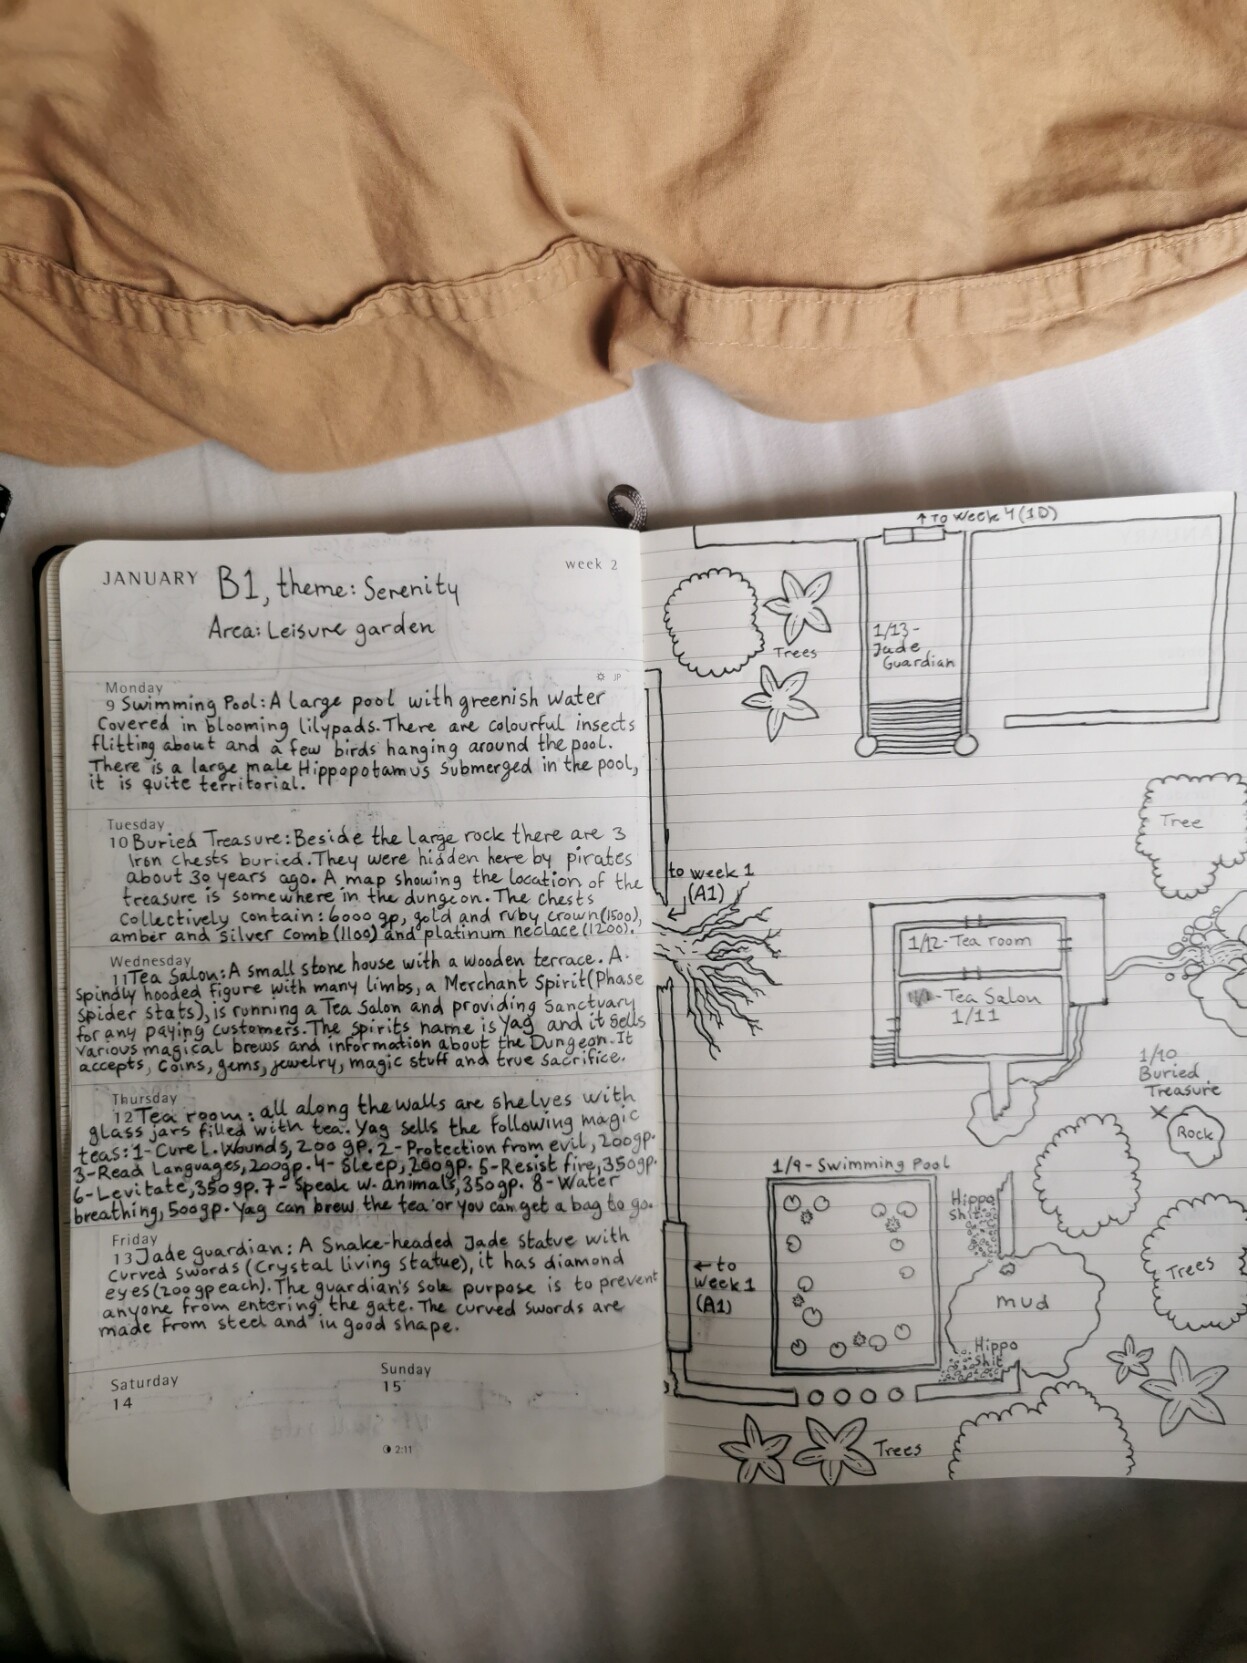 JANUARY B1, theme: Serenity
week 2
Area: Leisure garden
Monday
JP
9 Swimming Pool: A large pool with greenish water
Covered in blooming lilypads. There are colourful insects
flitting about and a few birds hanging around the pool.
There is a large male Hippopotamus submerged in the pool,
it is quite territorial.
Tuesday
10 Buried Treasure: Beside the large rock there are 3
Iron chests buried. They were hidden here by pirates
about 30 years ago. A map showing the location of the
treasure is somewhere in the dungeon. The chests
Collectively contain: 6000 gp, gold and ruby crown (1500),
amber and silver comb (1100) and platinum neclace (1200).
Wednesday
11 Tea Salon: A small stone house with a wooden terrace. A
spindly hooded figure with many limbs, a Merchant Spirit (Phase
Spider stats), is running a Tea Salon and providing Sanctuary
for any paying customers. The spirits name is Yag and it sells
various magical brews and information about the Dungeon. It
accepts, Coins, gems, jewelry, magic stuff and true sacrifice.
Thursday
12 Tea room: all along the walls are shelves with
glass jars filled with tea. Yag sells the following magic
teas: 1- Cure L. Wounds, 200 gp. 2- Protection from evil, 200gp.
3-Read Languages, 200gp. 4- Sleep, 200gp. 5-Resist fire, 350gp.
6-Levitate, 350gp. 7- Speak w. animals, 350gp. 8- Water
breathing, 500gp. Yag can brew the tea or you can get a bag to go.
Friday
13 Jade guardian: A Snake-headed Jade statue with
curved swords (Crystal living statue), it has diamond
eyes (200gp each). The guardian's sole purpose is to prevent
anyone from entering the gate. The curved swords are
made from steel and in good shape.
Saturday
14
Sunday
15
2:11
↑ To Week 4 (1D)
1/13-
Jade
Guardian
Trees
Tree
to week 1
(A1)
1/12- Tea room
- Tea Salon
1/11
1/10
Buried
Treasure
×
Rock
1/9- Swimming Pool
Hippo
shit
Trees
← to
week 1
(A1)
mud
Hippo
shit
Trees